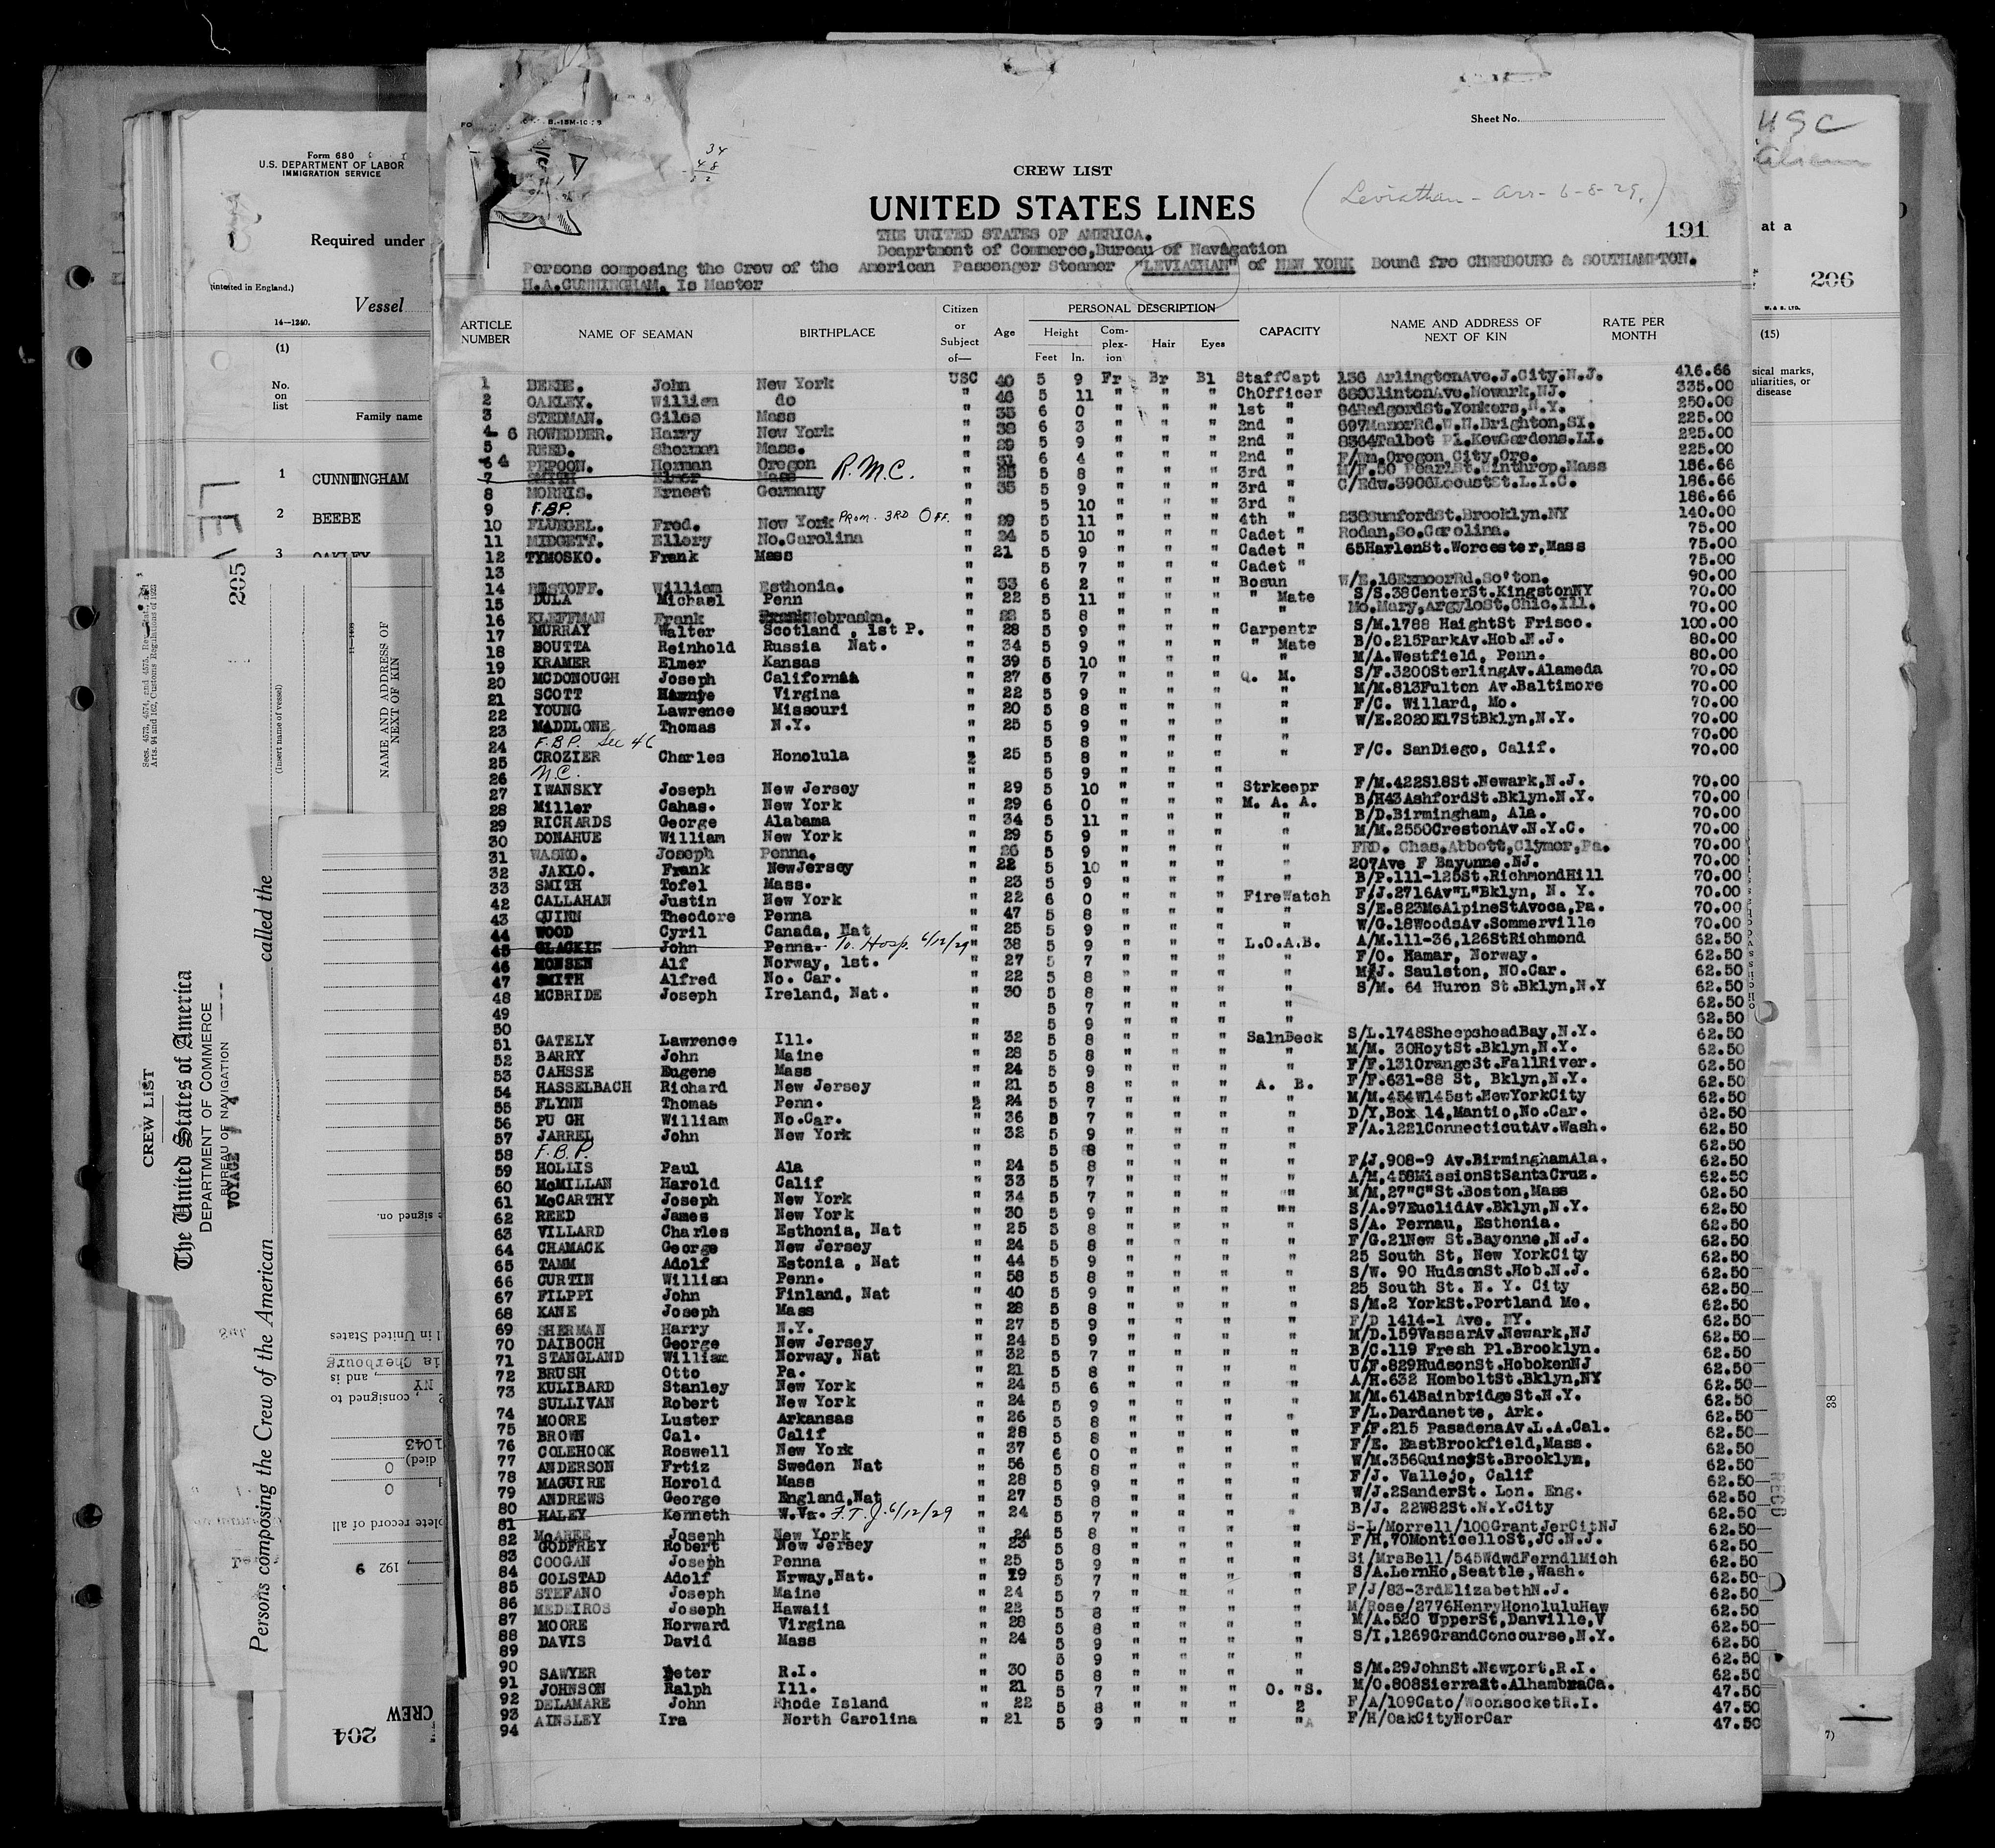 Form 680
U.S. DEPARTMENT OF LABOR
IMMIGRATION SERVICE
Required under
Vessel
14—1240.
(1)
No.
on
list
Family name
1 CUNNINGHAM
2 BEEBE
3 OAKLEY
205
CREW LIST
The United States of America
DEPARTMENT OF COMMERCE
BUREAU OF NAVIGATION
VOYAGE
Persons composing the Crew of the American called the
(Insert name of vessel)
NAME AND ADDRESS OF
NEXT OF KIN
204
CREW
Sheet No.
34
48
CREW LIST
UNITED STATES LINES
(Leviathan - arr - 6-8-29.)
191
THE UNITED STATES OF AMERICA.
Deaprtment of Commerce,Bureau of Navigation
Persons composing the Crew of the American Passenger Steamer "LEVIATHAN" of NEW YORK Bound fro CHERBOURG & SOUTHAMPTON.
H.A.CUNNINGHAM. Is Master
ARTICLE NUMBER NAME OF SEAMAN BIRTHPLACE Citizen or Subject of— Age PERSONAL DESCRIPTION Height Feet In. Complexion Hair Eyes CAPACITY NAME AND ADDRESS OF NEXT OF KIN RATE PER MONTH
1 BEEBE. John New York USC 40 5 9 Fr Br Bl StaffCapt 136 ArlingtonAve.J.City.N.J. 416.66
2 OAKLEY. William do " 46 5 11 " " " ChOfficer 680ClintonAve.Newark,NJ. 335.00
3 STEDMAN. Giles Mass " 35 6 0 " " " 1st " 94RadgordSt.Yonkers,N.Y. 250.00
4-6 ROWEDDER. Harry New York " 38 6 3 " " " 2nd " 697ManorRd.W.N.Brighton,SI. 225.00
5 REED. Sherman Mass. " 29 5 9 " " " 2nd " 8364Talbot Pl.KewGardens.LI. 225.00
6 4 PEPOON. Herman Oregon " 31 6 4 " " " 2nd " F/Wm.Oregon City,Ore. 225.00
7 SMITH Elmer Mass R.M.C. " 25 5 8 " " " 3rd " M/F.50 PearlSt.Winthrop.Mass 186.66
8 MORRIS. Ernest Germany " 35 5 9 " " " 3rd " C/Edw.3906LocustSt.L.I.C. 186.66
9 F.B.P. 5 10 " " " 3rd " 186.66
10 FLUEGEL. Fred. New York PROM. 3RD OFF. " 29 5 11 " " " 4th " 238SumfordSt.Brooklyn.NY 140.00
11 MIDGETT. Ellery No.Carolina " 24 5 10 " " " Cadet " Rodan,So.Carolina. 75.00
12 TYMOSKO. Frank Mass " 21 5 9 " " " Cadet " 65HarlenSt.Worcester,Mass 75.00
13 5 7 " " " Cadet " 75.00
14 RESTOFF. William Esthonia. " 33 6 2 " " " Bosun W/E.16ExmoorRd.So'ton. 90.00
15 DULA Michael Penn " 22 5 11 " " " " Mate S/S.38CenterSt.KingstonNY 70.00
16 KLEFFMAN Frank Nebraska. " 22 5 8 " " " " Mo.Mary,ArgyloSt.Chic.Ill. 70.00
17 MURRAY Walter Scotland , 1st P. " 28 5 9 " " " Carpentr S/M.1788 HaightSt Frisco. 100.00
18 BOUTTA Reinhold Russia Nat. " 34 5 9 " " " " Mate B/O.215ParkAv.Hob.N.J. 80.00
19 KRAMER Elmer Kansas " 39 5 10 " " " " M/A.Westfield, Penn. 80.00
20 MCDONOUGH Joseph California " 27 5 7 " " " Q. M. S/F.3200SterlingAv.Alameda 70.00
21 SCOTT Virgina " 22 5 9 " " " " M/M.813Fulton Av.Baltimore 70.00
22 YOUNG Lawrence Missouri " 20 5 8 " " " " F/C. Willard, Mo. 70.00
23 MADDLONE Thomas N.Y. " 25 5 9 " " " " W/E.2020E17StBklyn,N.Y. 70.00
24 F.B.P. See 46 5 8 " " " " 70.00
25 CROZIER Charles Honolula 2 25 5 8 " " " " F/C. SanDiego, Calif. 70.00
26 N.C. " 5 9 " " "
27 IWANSKY Joseph New Jersey " 29 5 10 " " " Strkeepr F/M.422S18St.Newark,N.J. 70.00
28 Miller Cahas. New York " 29 6 0 " " " M. A. A. B/H43AshfordSt.Bklyn.N.Y. 70.00
29 RICHARDS George Alabama " 34 5 11 " " " " B/D.Birmingham, Ala. 70.00
30 DONAHUE William New York " 29 5 9 " " " " M/M.2550CrestonAv.N.Y.C. 70.00
31 WASKO. Joseph Penna. " 26 5 9 " " " " FRD. Chas.Abbott,Clymer,Pa. 70.00
32 JAKLO. Frank NewJersey " 22 5 10 " " " " 207Ave F Bayonne.NJ. 70.00
33 SMITH Tofel Mass. " 23 5 9 " " " " B/P.111-125St.RichmondHill 70.00
42 CALLAHAN Justin New York " 22 6 0 " " " FireWatch F/J.2716Av"L"Bklyn, N. Y. 70.00
43 QUINN Theodore Penna " 47 5 8 " " " " S/E.823McAlpineStAvoca,Pa. 70.00
44 WOOD Cyril Canada, Nat " 25 5 9 " " " " W/G.18WoodsAv.Sommerville 70.00
45 GLACKIN John Penna. To. Hosp. 6/12/29 " 38 5 9 " " " L.O.A.B. A/M.111-36,126StRichmond 62.50
46 MONSEN Alf Norway, 1st. " 27 5 7 " " " " F/O. Hamar, Norway. 62.50
47 SMITH Alfred No. Car. " 22 5 8 " " " " M/J. Saulston, NO.Car. 62.50
48 MCBRIDE Joseph Ireland, Nat. " 30 5 8 " " " " S/M. 64 Huron St.Bklyn,N.Y 62.50
49 " 5 7 " " " " 62.50
50 " 5 9 " " " " 62.50
51 GATELY Lawrence Ill. " 32 5 8 " " " SalnDeck S/L.1748SheepsheadBay,N.Y. 62.50
52 BARRY John Maine " 28 5 8 " " " " M/M. 30HoytSt.Bklyn,N.Y. 62.50
53 CAHSSE Eugene Mass " 24 5 9 " " " " F/F.131OrangeSt.FallRiver. 62.50
54 HASSELBACH Richard New Jersey " 21 5 8 " " " A. B. F/F.631-88 St, Bklyn,N.Y. 62.50
55 FLYNN Thomas Penn. 2 24 5 7 " " " " M/M.454W145st.NewYorkCity 62.50
56 PU GH William No.Car. " 36 5 7 " " " " D/Y,Box 14,Mantio,No.Car. 62.50
57 JARREL John New York " 32 5 9 " " " " F/A.1221ConnecticutAv.Wash. 62.50
58 F.B.P. 5 8 " " " " 62.50
59 HOLLIS Paul Ala " 24 5 8 " " " " F/J,908-9 Av.BirminghamAla. 62.50
60 McMILLAN Harold Calif " 33 5 7 " " " " A/M,458MissionStSantaCruz. 62.50
61 McCARTHY Joseph New York " 34 5 7 " " " " M/M,27"C"St.Boston,Mass 62.50
62 REED James New York " 30 5 9 " " " "" S/A.97EuclidAv.Bklyn,N.Y. 62.50
63 VILLARD Charles Esthonia, Nat " 25 5 8 " " " " S/A. Pernau, Esthonia. 62.50
64 CHAMACK George New Jersey " 24 5 8 " " " " F/G.21New St.Bayonne,N.J. 62.50
65 TAMM Adolf Estonia , Nat " 44 5 9 " " " " 25 South St, New YorkCity 62.50
66 CURTIN William Penn. " 58 5 8 " " " " S/W. 90 HudsonSt.Hob.N.J. 62.50
67 FILPPI John Finland, Nat " 40 5 9 " " " " 25 South St. N. Y. City 62.50
68 KANE Joseph Mass " 28 5 8 " " " " S/M.2 YorkSt.Portland Me. 62.50
69 SHERMAN Harry N.Y. " 27 5 9 " " " " F/D 1414-1 Ave. NY. 62.50
70 DAIBOCH George New Jersey " 24 5 9 " " " " M/D.159VassarAv.Newark,NJ 62.50
71 STANGLAND William Norway, Nat " 32 5 7 " " " " B/C.119 Fresh Pl.Brooklyn. 62.50
72 BRUSH Otto Pa. " 21 5 8 " " " " U/F.829HudsonSt.HobokenNJ 62.50
73 KULIBARD Stanley New York " 24 5 6 " " " " A/H.632 HomboltSt.Bklyn,NY 62.50
SULLIVAN Robert New York " 24 5 9 " " " " M/M.614BainbridgeSt.N.Y. 62.50
74 MOORE Luster Arkansas " 26 5 8 " " " " F/L.Dardanette, Ark. 62.50
75 BROWN Cal. Calif " 28 5 8 " " " " F/F.215 PasadenaAv.L.A.Cal. 62.50
76 COLEHOOK Roswell New York " 37 6 0 " " " " F/E. EastBrookfield,Mass. 62.50
77 ANDERSON Frtiz Sweden Nat " 56 5 8 " " " " W/M.356QuincySt.Brooklyn, 62.50
78 MAGUIRE Horold Mass " 28 5 9 " " " " F/J. Vallejo, Calif 62.50
79 ANDREWS George England,Nat " 27 5 8 " " " " W/J.2SanderSt. Lon. Eng. 62.50
80 HALEY Kenneth W.Va. F.T.J. 6/12/29 " 24 5 7 " " " " B/J. 22W82St.N.Y.City 62.50
81
82 McAREE Joseph New York " 24 5 8 " " " " S-L/Morrell/100GrantJerCitNJ 62.50
GODFREY Robert New Jersey " 23 5 8 " " " " F/H,70MonticelloSt,JC.N.J. 62.50
83 COOGAN Joseph Penna " 25 5 9 " " " " Si/MrsBell/545WdwdFerndlMich 62.50
84 GOLSTAD Adolf Nrway,Nat. " 29 5 7 " " " " S/A.LernHo,Seattle,Wash. 62.50
85 STEFANO Joseph Maine " 24 5 7 " " " " F/J/83-3rdElizabethN.J. 62.50
86 MEDEIROS Joseph Hawaii " 22 5 8 " " " " M/Rose/2776HenryHonoluluHaw 62.50
87 MOORE Horward Virgina " 28 5 8 " " " " M/A.520 UpperSt,Danville,V 62.50
88 DAVIS David Mass " 24 5 9 " " " " S/I,1269GrandConcourse,N.Y. 62.50
89 " 5 9 " " " " 62.50
90 SAWYER Peter R.I. " 30 5 8 " " " " S/M.29JohnSt.Newport,R.I. 62.50
91 JOHNSON Ralph Ill. " 21 5 7 " " " O. "S. M/O.808SierraSt.AlhambraCa. 47.50
92 DELAMARE John Rhode Island " 22 5 8 " " " 2 F/A/109Cato/WoonsocketR.I. 47.50
93 AINSLEY Ira North Carolina " 21 5 9 " " " "A F/H/OakCityNorCar 47.50
94
USC
at a
206
(15)
sical marks,
uliarities, or
disease
88
RECD